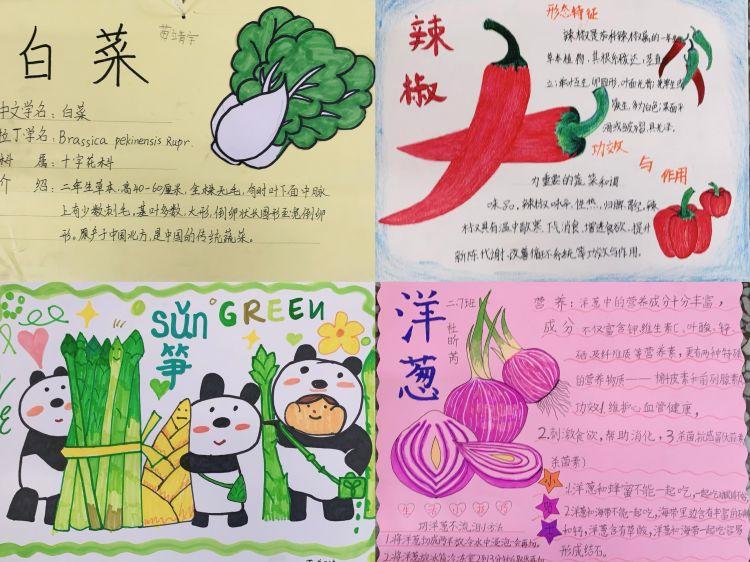 白菜
苗靖宇
中文学名：白菜
拉丁学名：Brassica pekinensis Rupr.
科 属：十字花科
介 绍：二年生草本，高40-60厘米，全株无毛，有时叶下面中脉
上有少数刺毛，基叶多数，大形，倒卵状长圆形至宽倒卵
形。原产于中国北方，是中国的传统蔬菜。
辣椒
形态特征
辣椒是茄科辣椒属的一年生
草本植物，其根系
功效
与作用
为重要的蔬菜和调
味品，辣椒味辛、性热，归脾
椒具有温中散寒、下气消食、增进食欲、提升
新陈代谢、改善循环系统等功效与作用。
sǔn
笋
GREEN
洋葱
二.7班
杜昕芮
营养：洋葱中的营养成分十分丰富，
成分 不仅富含钾、维生素C、叶酸、锌、
硒及纤维质等营养素，更有两种特殊
的营养物质——槲皮素和前列腺素
功效1.维护心血管健康，
2.刺激食欲，帮助消化，3.杀菌，抗感冒
杀菌素）
1.洋葱和蜂蜜不能一起吃，
2.洋葱和海带不能一起吃，海带里边含有丰富的
和钙，洋葱含有草酸，洋葱和海带一起吃容易
形成结石。
切洋葱不流泪小方法
1.将洋葱切成两半放冷水中浸泡一会再切。